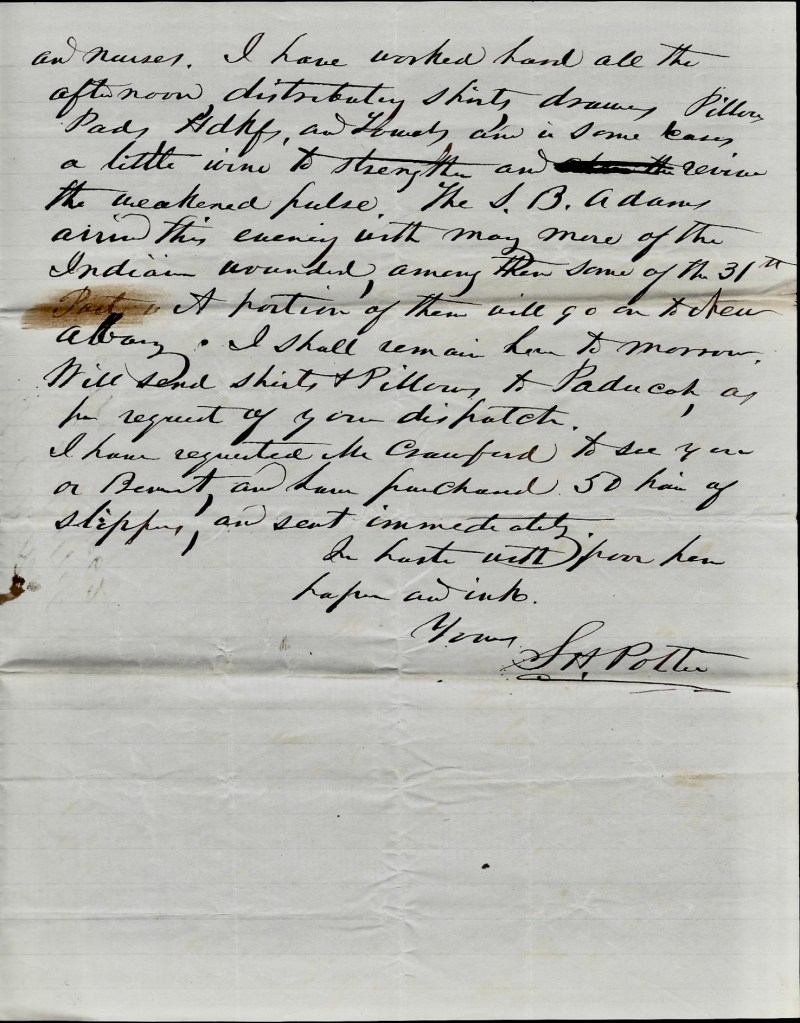 and nurses. I have worked hard all the
afternoon, distributing shirts, drawers, Pillows
Pads, Hdkfs, and Towels and in some cases
a little wine to strengthen and revive
the weakened pulse. The S. B. Adams
arrived this evening with many more of the
Indiana wounded, among them some of the 31th
A portion of them will go on to New
Albany. I shall remain here to morrow.
Will send shirts & Pillows, to Paducah, as
per request of your dispatch.
I have requested Mr Crawford to see you
or and have purchased 50 pair of
slippers, and sent immediately.
In haste with poor pen
paper and ink.
Yours
S. H. Potter